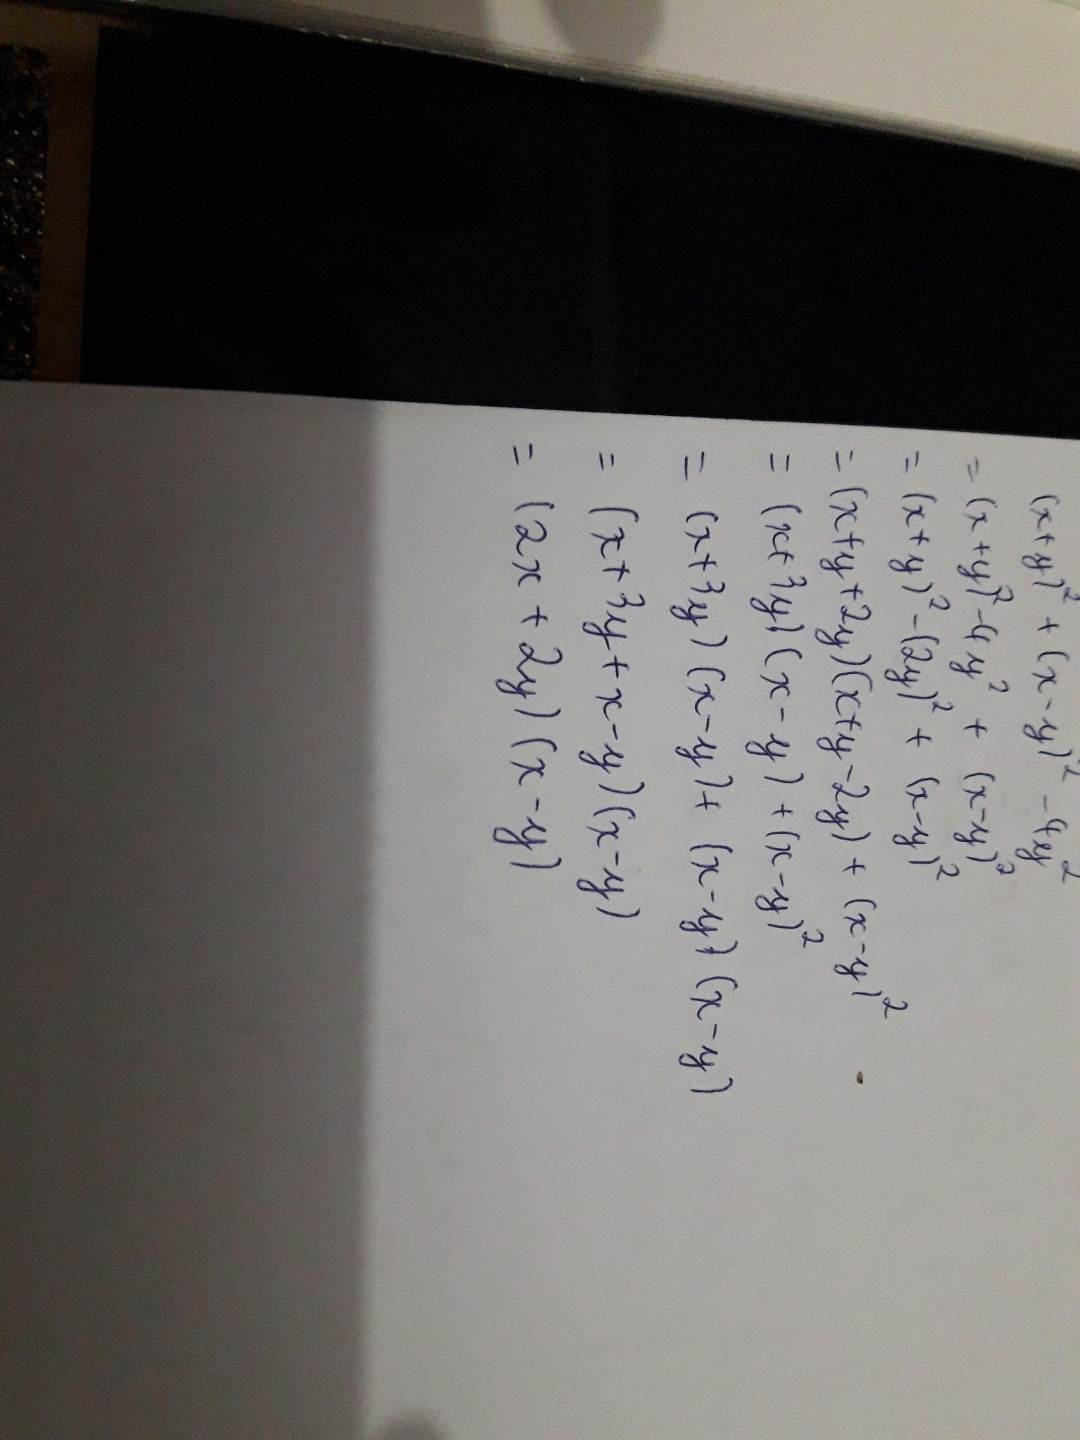 (x+y)² + (x-y)² - 4y²
= (x+y)² - 4y² + (x-y)²
= (x+y)² - (2y)² + (x-y)²
= (x+y+2y)(x+y-2y) + (x-y)²
= (x+3y)(x-y) + (x-y)²
= (x+3y)(x-y) + (x-y)(x-y)
= (x+3y+x-y)(x-y)
= (2x+2y)(x-y)